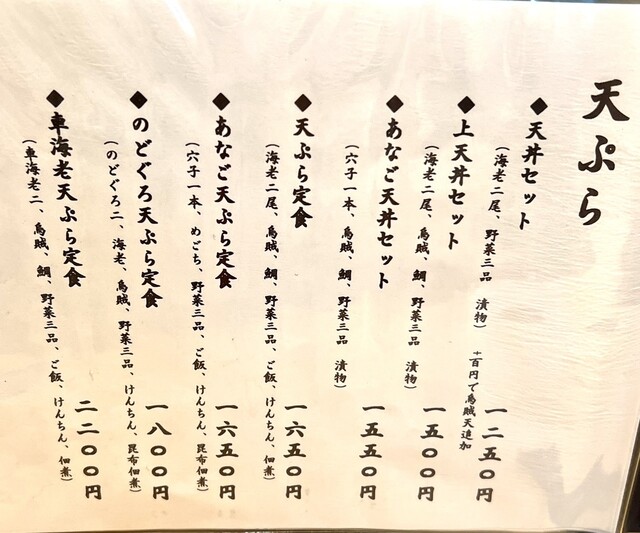 天ぷら
◆天丼セット
(海老二尾、野菜三品 漬物)
+百円で烏賊天追加
一二五〇円
◆上天丼セット
(海老二尾、烏賊、鯛、野菜三品 漬物)
一五〇〇円
◆あなご天丼セット
(穴子一本、烏賊、鯛、野菜三品 漬物)
一五五〇円
◆天ぷら定食
(海老二尾、烏賊、鯛、野菜三品、ご飯、けんちん、佃煮)
一六五〇円
◆あなご天ぷら定食
(穴子一本、めごち、野菜三品、ご飯、けんちん、昆布佃煮)
一六五〇円
◆のどぐろ天ぷら定食
(のどぐろ二、海老、烏賊、野菜三品、けんちん、昆布佃煮)
一八〇〇円
◆車海老天ぷら定食
(車海老二、烏賊、鯛、野菜三品、ご飯、けんちん、佃煮)
二二〇〇円